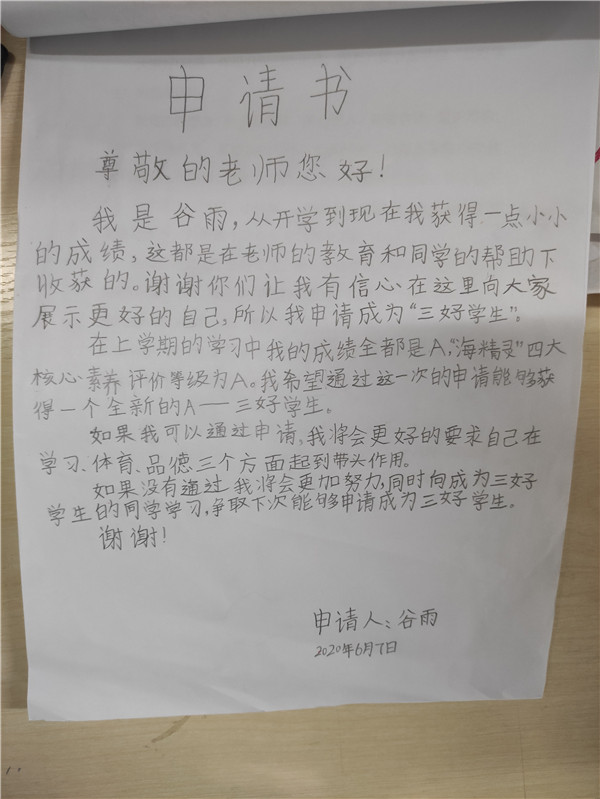 申请书
尊敬的老师您好！
我是谷雨，从开学到现在我获得一点小小
的成绩，这都是在老师的教育和同学的帮助下
收获的。谢谢你们让我有信心在这里向大家
展示更好的自己，所以我申请成为“三好学生”。
在上学期的学习中我的成绩全都是A，“海精灵”四大
核心素养评价等级为A。我希望通过这一次的申请能够获
得一个全新的A——三好学生。
如果我可以通过申请，我将会更好的要求自己在
学习、体育、品德三个方面起到带头作用。
如果没有通过我将会更加努力，同时向成为三好
学生的同学学习，争取下次能够申请成为三好学生。
谢谢！
申请人：谷雨
2020年6月7日